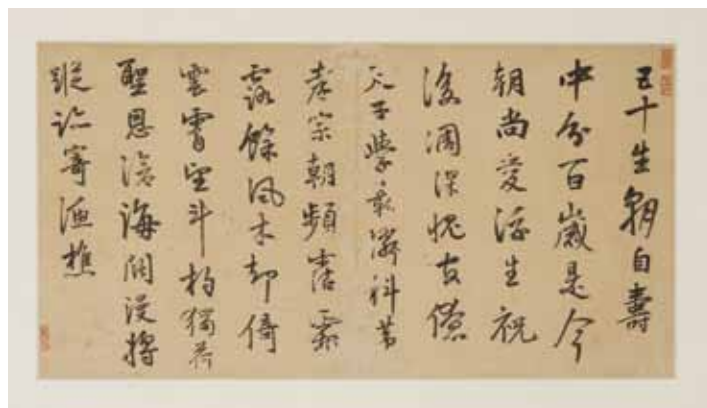 五十生朝自壽
中分百歲是今
朝尚愛浮生祝
後凋深愧友僚
天子學最憐科第
孝宗朝頻霑
露餘風木却倚
雲霄望斗杓獨荷
聖恩滄海闊漫將
蹤跡寄漁樵